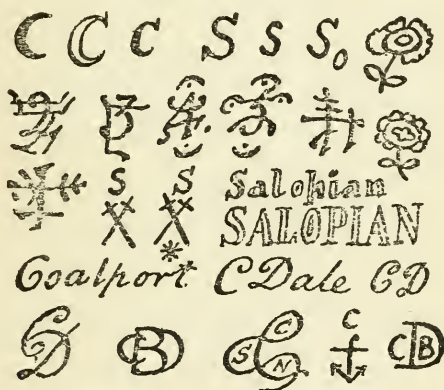 C C C S S So
S S Salopian
SALOPIAN
Coalport CDale CD
CD CB S C N C CDB